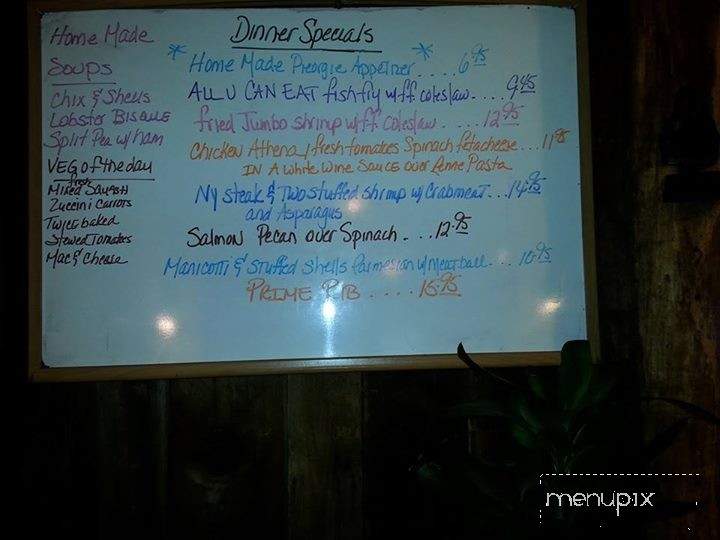 Home Made
Soups
Chix & Shells
Lobster Bisque
Split Pea w/ Ham
VEG of the day
fresh
Mixed Squash
Zuccini Carrots
Twice baked
Stewed Tomatoes
Mac & Cheese
Dinner Specials
* Home Made Pierogie Appetizer .... 6.95 *
ALL U CAN EAT fish fry w/ f.f. coleslaw.... 9.45
fried Jumbo shrimp w/ f.f. coleslaw ..... 12.95
Chicken Athena, fresh tomatoes Spinach fetacheese... 11.95
IN A White Wine Sauce over Penne Pasta
Ny Steak & Two stuffed shrimp w/ Crabmeat... 14.95
and Asparagus
Salmon Pecan over Spinach ... 12.95
Manicotti & Stuffed Shells Parmesian w/ meatball.... 10.95
PRIME RIB ..... 15.95
menupix